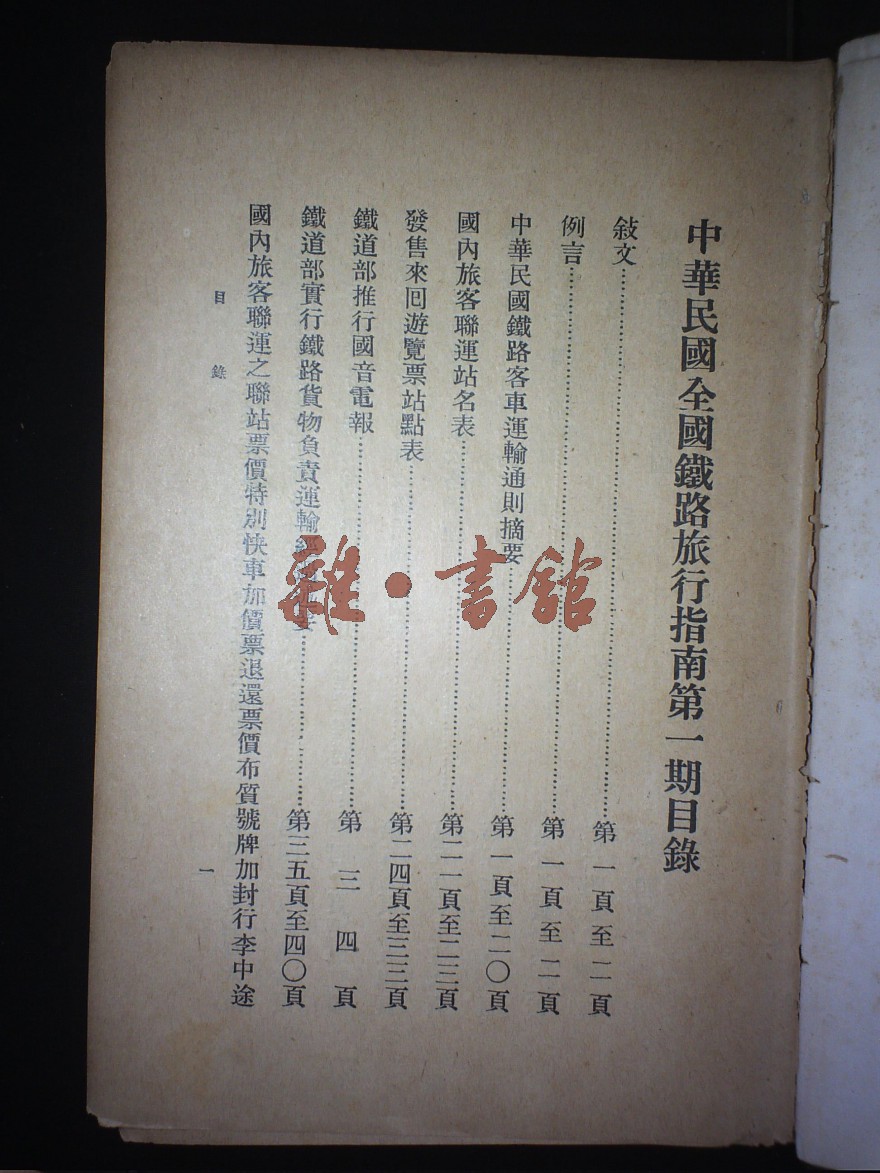 中華民國全國鐵路旅行指南第一期目錄
敍文……第一頁至二頁
例言……第一頁至二頁
中華民國鐵路客車運輸通則摘要……第一頁至二〇頁
國內旅客聯運站名表……第二一頁至二三頁
發售來回遊覽票站點表……第二四頁至三三頁
鐵道部推行國音電報……第三四頁
鐵道部實行鐵路貨物負責運輸……第三五頁至四〇頁
國內旅客聯運之聯站票價特別快車加價票退還票價布質號牌加封行李中途
目錄
一
雜·書館